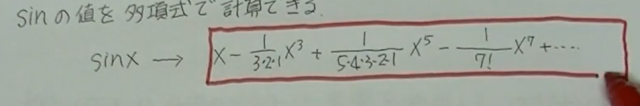 sinの値を多項式で計算できる.
sinx → x - 1/3·2·1 x³ + 1/5·4·3·2·1 x⁵ - 1/7! x⁷ + ····